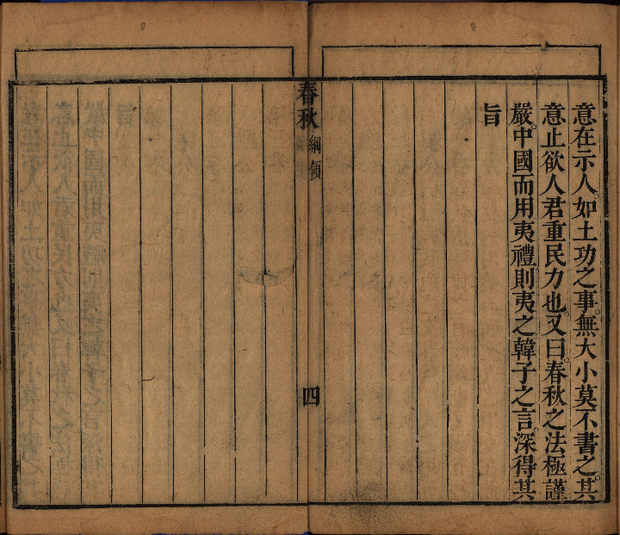 意在示人如土功之事無大小莫不書之其
意止欲人君重民力也又曰春秋之法極謹
嚴中國而用夷禮則夷之韓子之言深得其
旨
春秋 綱領
四